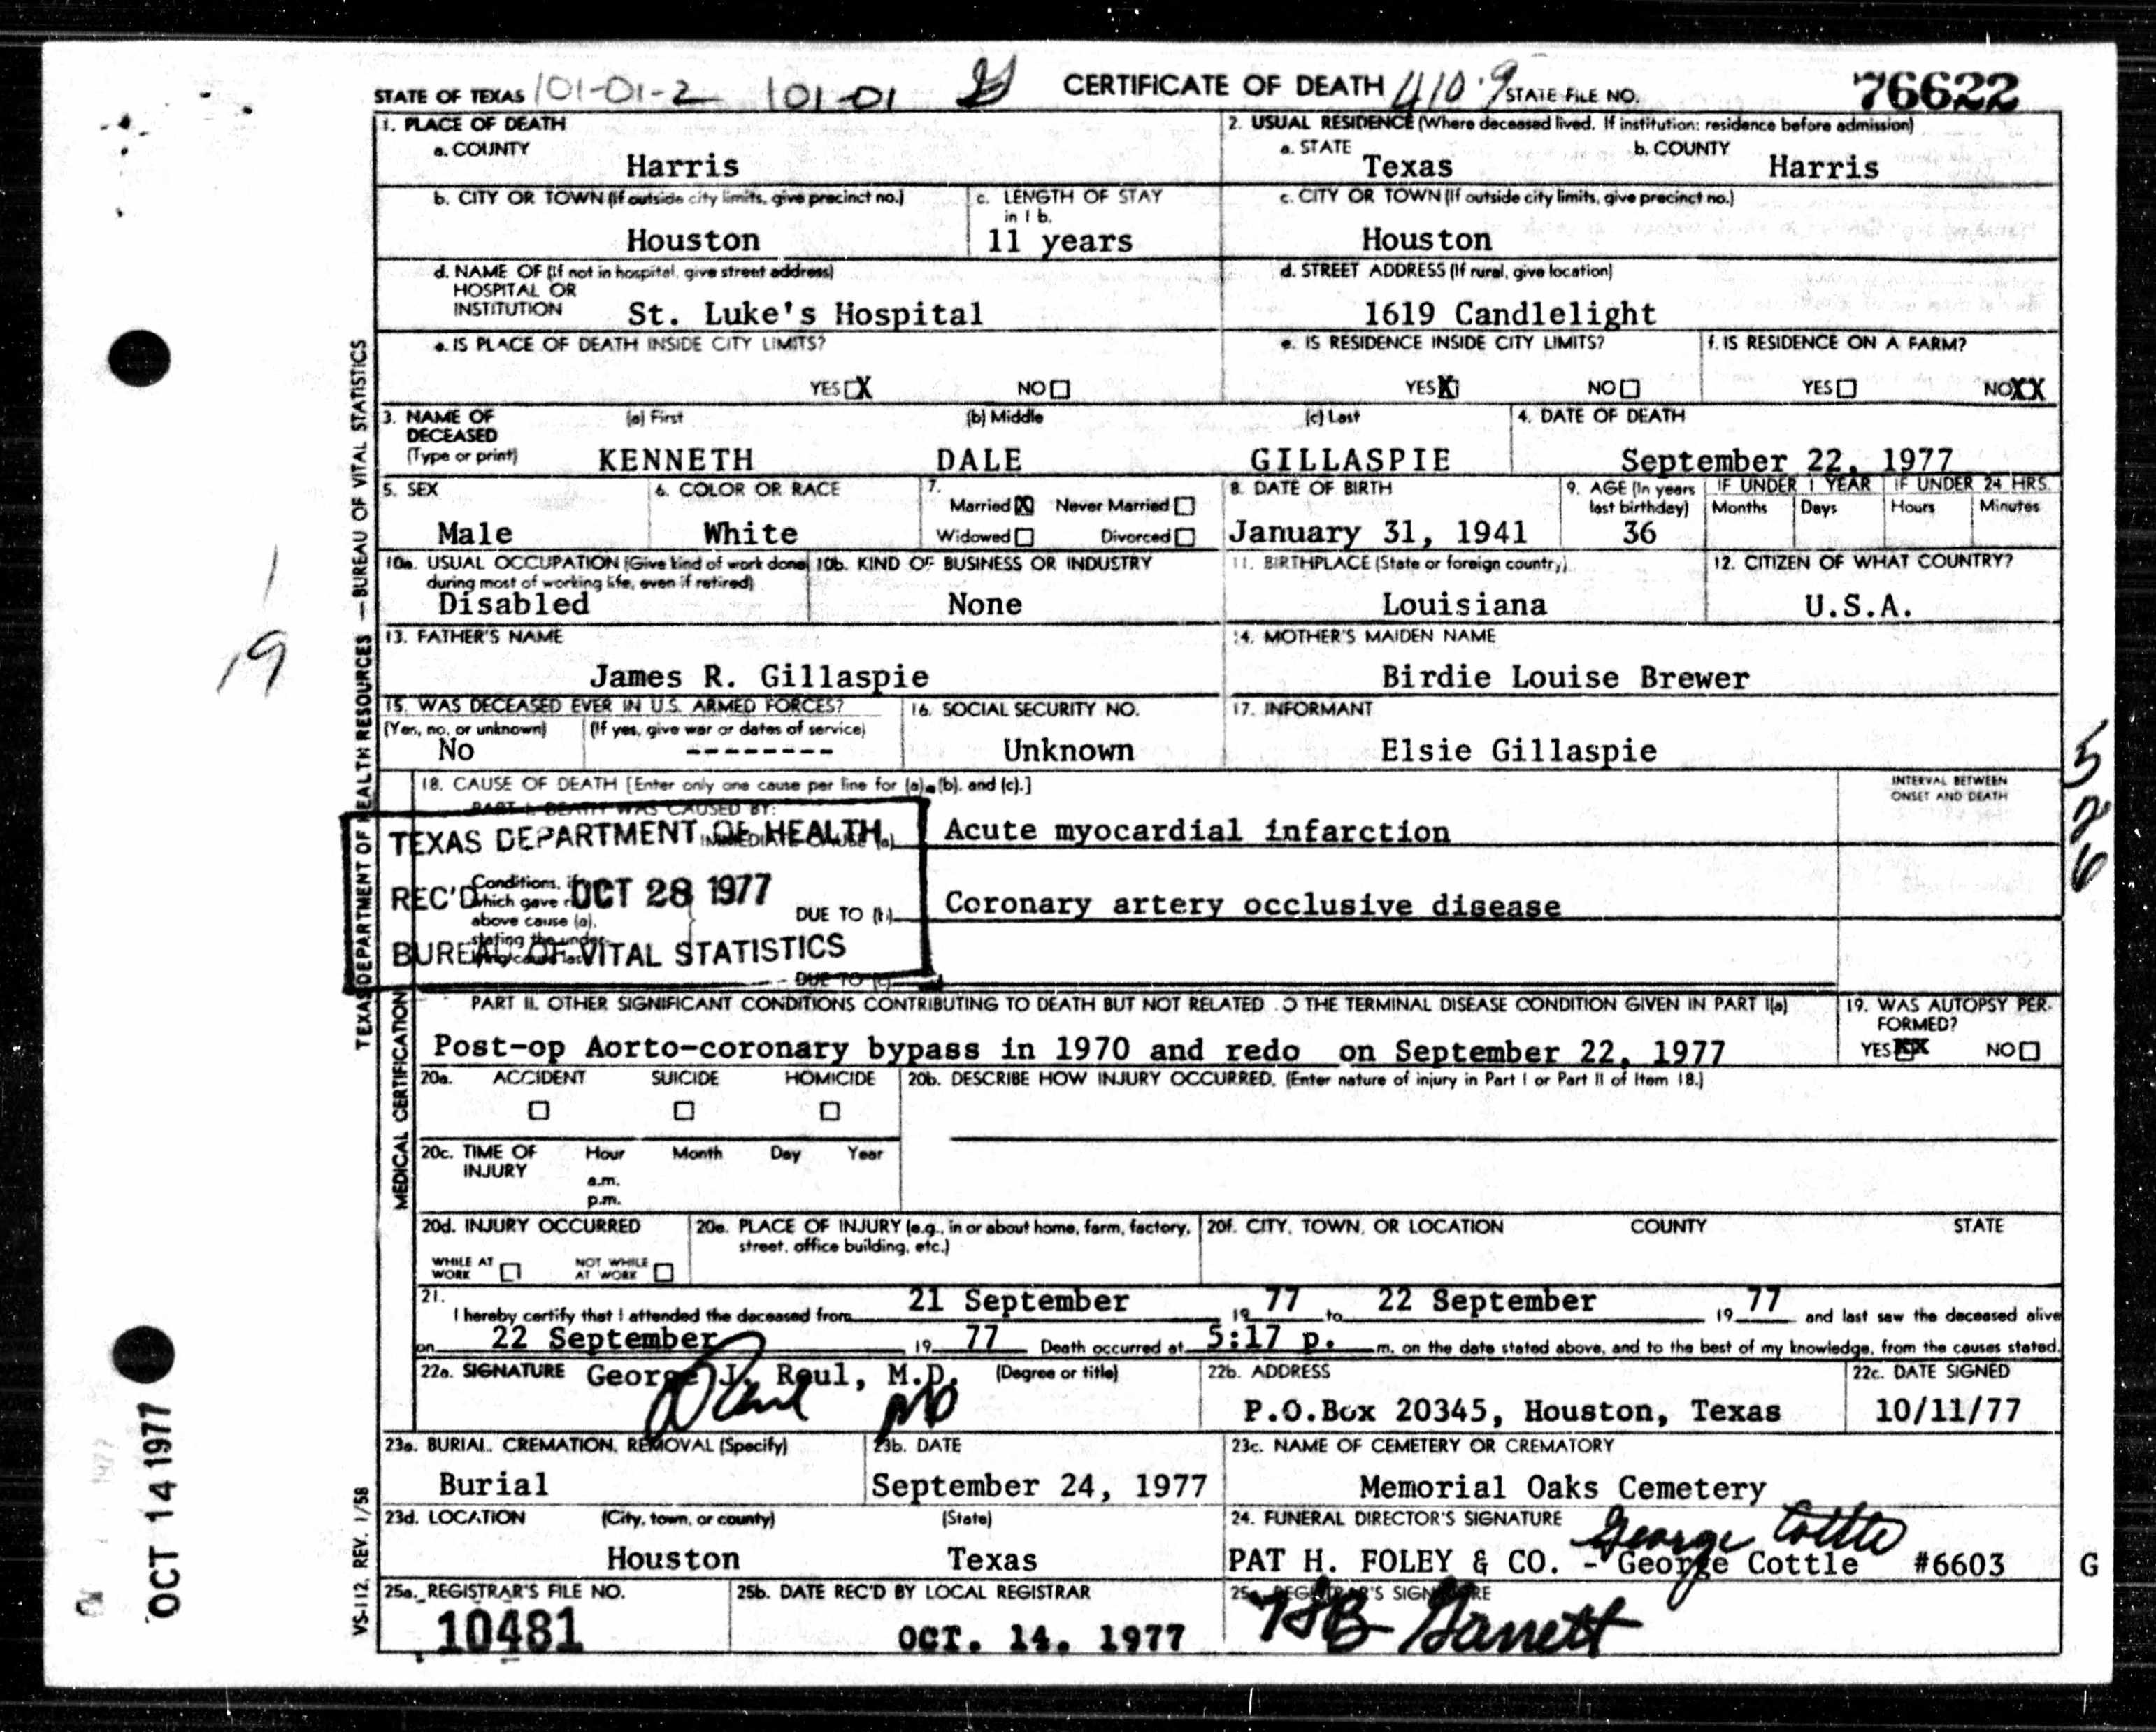 STATE OF TEXAS 101-01-2 101-01 CERTIFICATE OF DEATH 410.9 STATE FILE NO. 76622
1. PLACE OF DEATH
a. COUNTY
Harris
2. USUAL RESIDENCE (Where deceased lived. If institution: residence before admission)
a. STATE
Texas
b. COUNTY
Harris
b. CITY OR TOWN (If outside city limits, give precinct no.)
Houston
c. LENGTH OF STAY
in 1 b.
11 years
c. CITY OR TOWN (If outside city limits, give precinct no.)
Houston
d. NAME OF (If not in hospital, give street address)
HOSPITAL OR
INSTITUTION St. Luke's Hospital
d. STREET ADDRESS (If rural, give location)
1619 Candlelight
e. IS PLACE OF DEATH INSIDE CITY LIMITS?
YES X NO
e. IS RESIDENCE INSIDE CITY LIMITS?
YES X NO
f. IS RESIDENCE ON A FARM?
YES NO XX
3. NAME OF
DECEASED
(Type or print)
(a) First
KENNETH
(b) Middle
DALE
(c) Last
GILLASPIE
4. DATE OF DEATH
September 22, 1977
5. SEX
Male
6. COLOR OR RACE
White
7.
Married X Never Married
Widowed Divorced
8. DATE OF BIRTH
January 31, 1941
9. AGE (In years
last birthday)
36
IF UNDER 1 YEAR
Months Days
IF UNDER 24 HRS.
Hours Minutes
10a. USUAL OCCUPATION (Give kind of work done
during most of working life, even if retired)
Disabled
10b. KIND OF BUSINESS OR INDUSTRY
None
11. BIRTHPLACE (State or foreign country)
Louisiana
12. CITIZEN OF WHAT COUNTRY?
U.S.A.
13. FATHER'S NAME
James R. Gillaspie
14. MOTHER'S MAIDEN NAME
Birdie Louise Brewer
15. WAS DECEASED EVER IN U.S. ARMED FORCES?
(Yes, no, or unknown)
No
(If yes, give war or dates of service)
--------
16. SOCIAL SECURITY NO.
Unknown
17. INFORMANT
Elsie Gillaspie
18. CAUSE OF DEATH [Enter only one cause per line for (a), (b), and (c).]
INTERVAL BETWEEN
ONSET AND DEATH
PART I. DEATH WAS CAUSED BY:
IMMEDIATE CAUSE (a) Acute myocardial infarction
TEXAS DEPARTMENT OF HEALTH
REC'D OCT 28 1977
BUREAU OF VITAL STATISTICS
Conditions, if
which gave
above cause (a),
stating the under-
DUE TO (b) Coronary artery occlusive disease
DUE TO (c)
PART II. OTHER SIGNIFICANT CONDITIONS CONTRIBUTING TO DEATH BUT NOT RELATED TO THE TERMINAL DISEASE CONDITION GIVEN IN PART I(a)
Post-op Aorto-coronary bypass in 1970 and redo on September 22, 1977
19. WAS AUTOPSY PER-
FORMED?
YES XX NO
20a. ACCIDENT SUICIDE HOMICIDE
20b. DESCRIBE HOW INJURY OCCURRED. (Enter nature of injury in Part I or Part II of Item 18.)
20c. TIME OF
INJURY
Hour Month Day Year
a.m.
p.m.
20d. INJURY OCCURRED
WHILE AT
WORK
NOT WHILE
AT WORK
20e. PLACE OF INJURY (e.g., in or about home, farm, factory,
street, office building, etc.)
20f. CITY, TOWN, OR LOCATION COUNTY STATE
21.
I hereby certify that I attended the deceased from 21 September 19 77 to 22 September 19 77 and last saw the deceased alive
on 22 September 19 77 Death occurred at 5:17 p. m. on the date stated above, and to the best of my knowledge, from the causes stated.
22a. SIGNATURE George J. Reul, M.D. (Degree or title)
Reul MD
22b. ADDRESS
P.O.Box 20345, Houston, Texas
22c. DATE SIGNED
10/11/77
23a. BURIAL, CREMATION, REMOVAL (Specify)
Burial
23b. DATE
September 24, 1977
23c. NAME OF CEMETERY OR CREMATORY
Memorial Oaks Cemetery
23d. LOCATION (City, town, or county) (State)
Houston Texas
24. FUNERAL DIRECTOR'S SIGNATURE George Cottle
PAT H. FOLEY & CO. - George Cottle #6603 G
25a. REGISTRAR'S FILE NO.
10481
25b. DATE REC'D BY LOCAL REGISTRAR
OCT. 14, 1977
25c. REGISTRAR'S SIGNATURE
Garrett
TEXAS DEPARTMENT OF HEALTH RESOURCES — BUREAU OF VITAL STATISTICS
MEDICAL CERTIFICATION
VS-112, REV. 1/58
19
526
OCT 14 1977